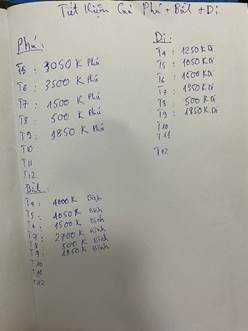 Tiết Kiệm Của Phú + Bảl + Di
Phú:
T5 : 3050 K Phú
T6 : 3500 K Phú
T7 : 1500 K Phú
T8 : 500 K Phú
T9 : 1850 K Phú
T10
T11
T12
Di:
T4 : 1250 K Di
T5 : 1050 K Di
T6 : 1500 K Di
T7 : 1350 K Di
T8 : 500 K Di
T9 : 1850 K Di
T10
T11
T12
T4 : 1000 K Bình
T5 : 1050 K Bình
T6 : 1500 K Bình
T7 : 2700 K Bình
T8 500 K Bình
T9 : 1850 K Bình
T10
T11
T12